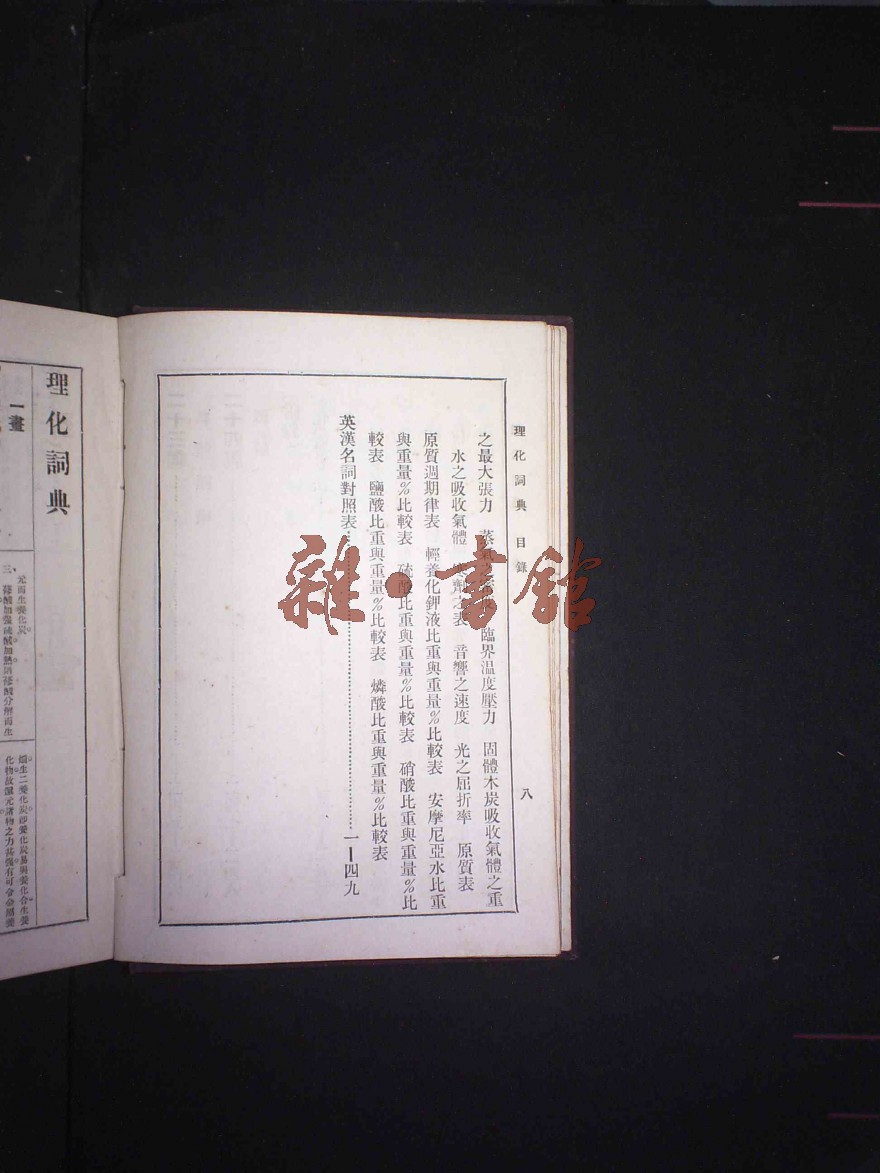 理化詞典 目錄
八
之最大張力 蒸 臨界温度壓力 固體木炭吸收氣體之重
水之吸收氣體 劑之表 音響之速度 光之屈折率 原質表
原質週期律表 輕養化鉀液比重與重量%比較表 安摩尼亞水比重
與重量%比較表 硫酸比重與重量%比較表 硝酸比重與重量%比
較表 鹽酸比重與重量%比較表 燐酸比重與重量%比較表
英漢名詞對照表 一—四九
雜·書館
理化詞典
一畫
元而生養化炭